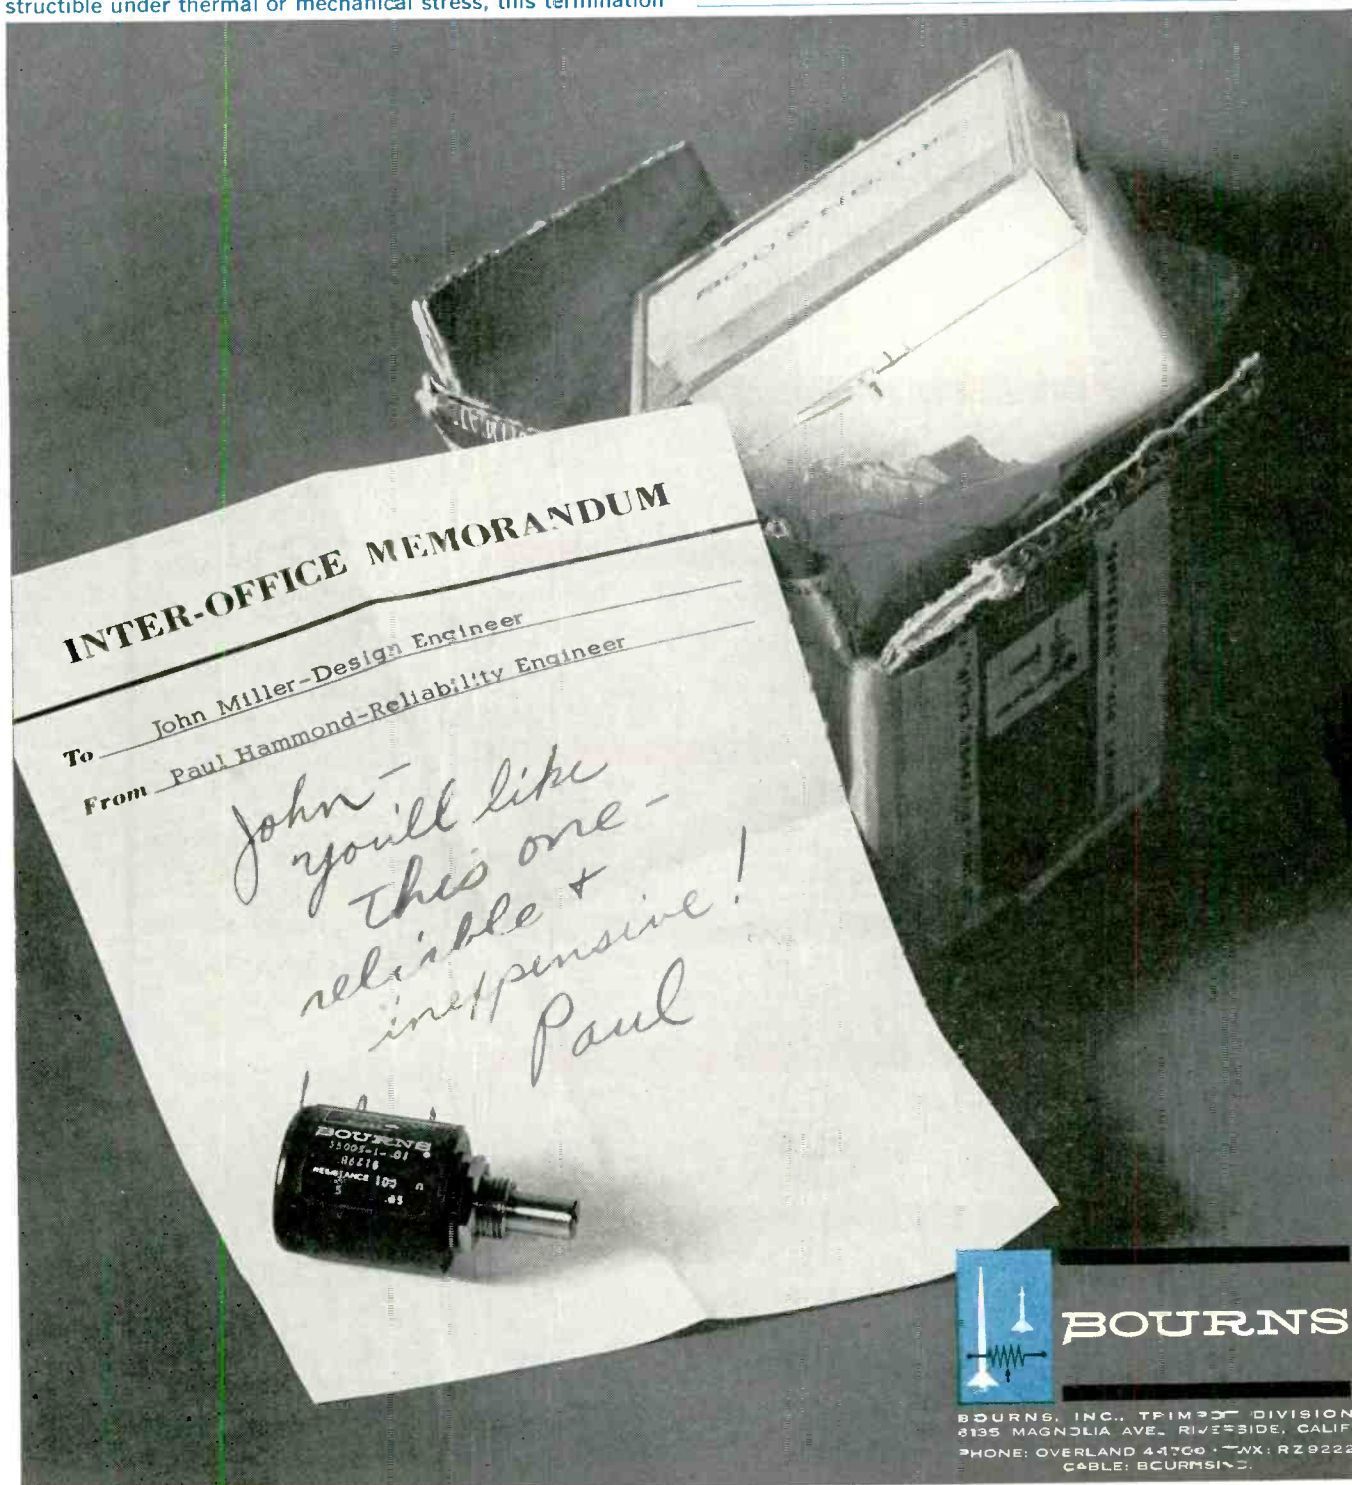 structible under thermal or mechanical stress, this termination
INTER-OFFICE MEMORANDUM
To John Miller-Design Engineer
From Paul Hammond-Reliability Engineer
John -
you'll like
this one -
reliable +
inexpensive!
Paul
BOURNS
RESISTANCE 100
BOURNS
BOURNS, INC., TRIMPOT DIVISION
6135 MAGNOLIA AVE., RIVERSIDE, CALIF
PHONE: OVERLAND 4-1700 · TWX: RZ9222
CABLE: BOURNSINC.